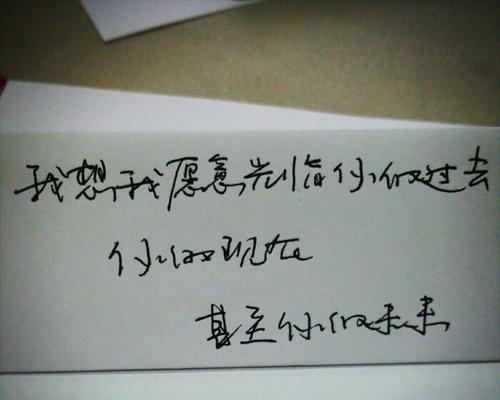 我想,我愿意,光临你的过去
你的现在
甚至你的未来